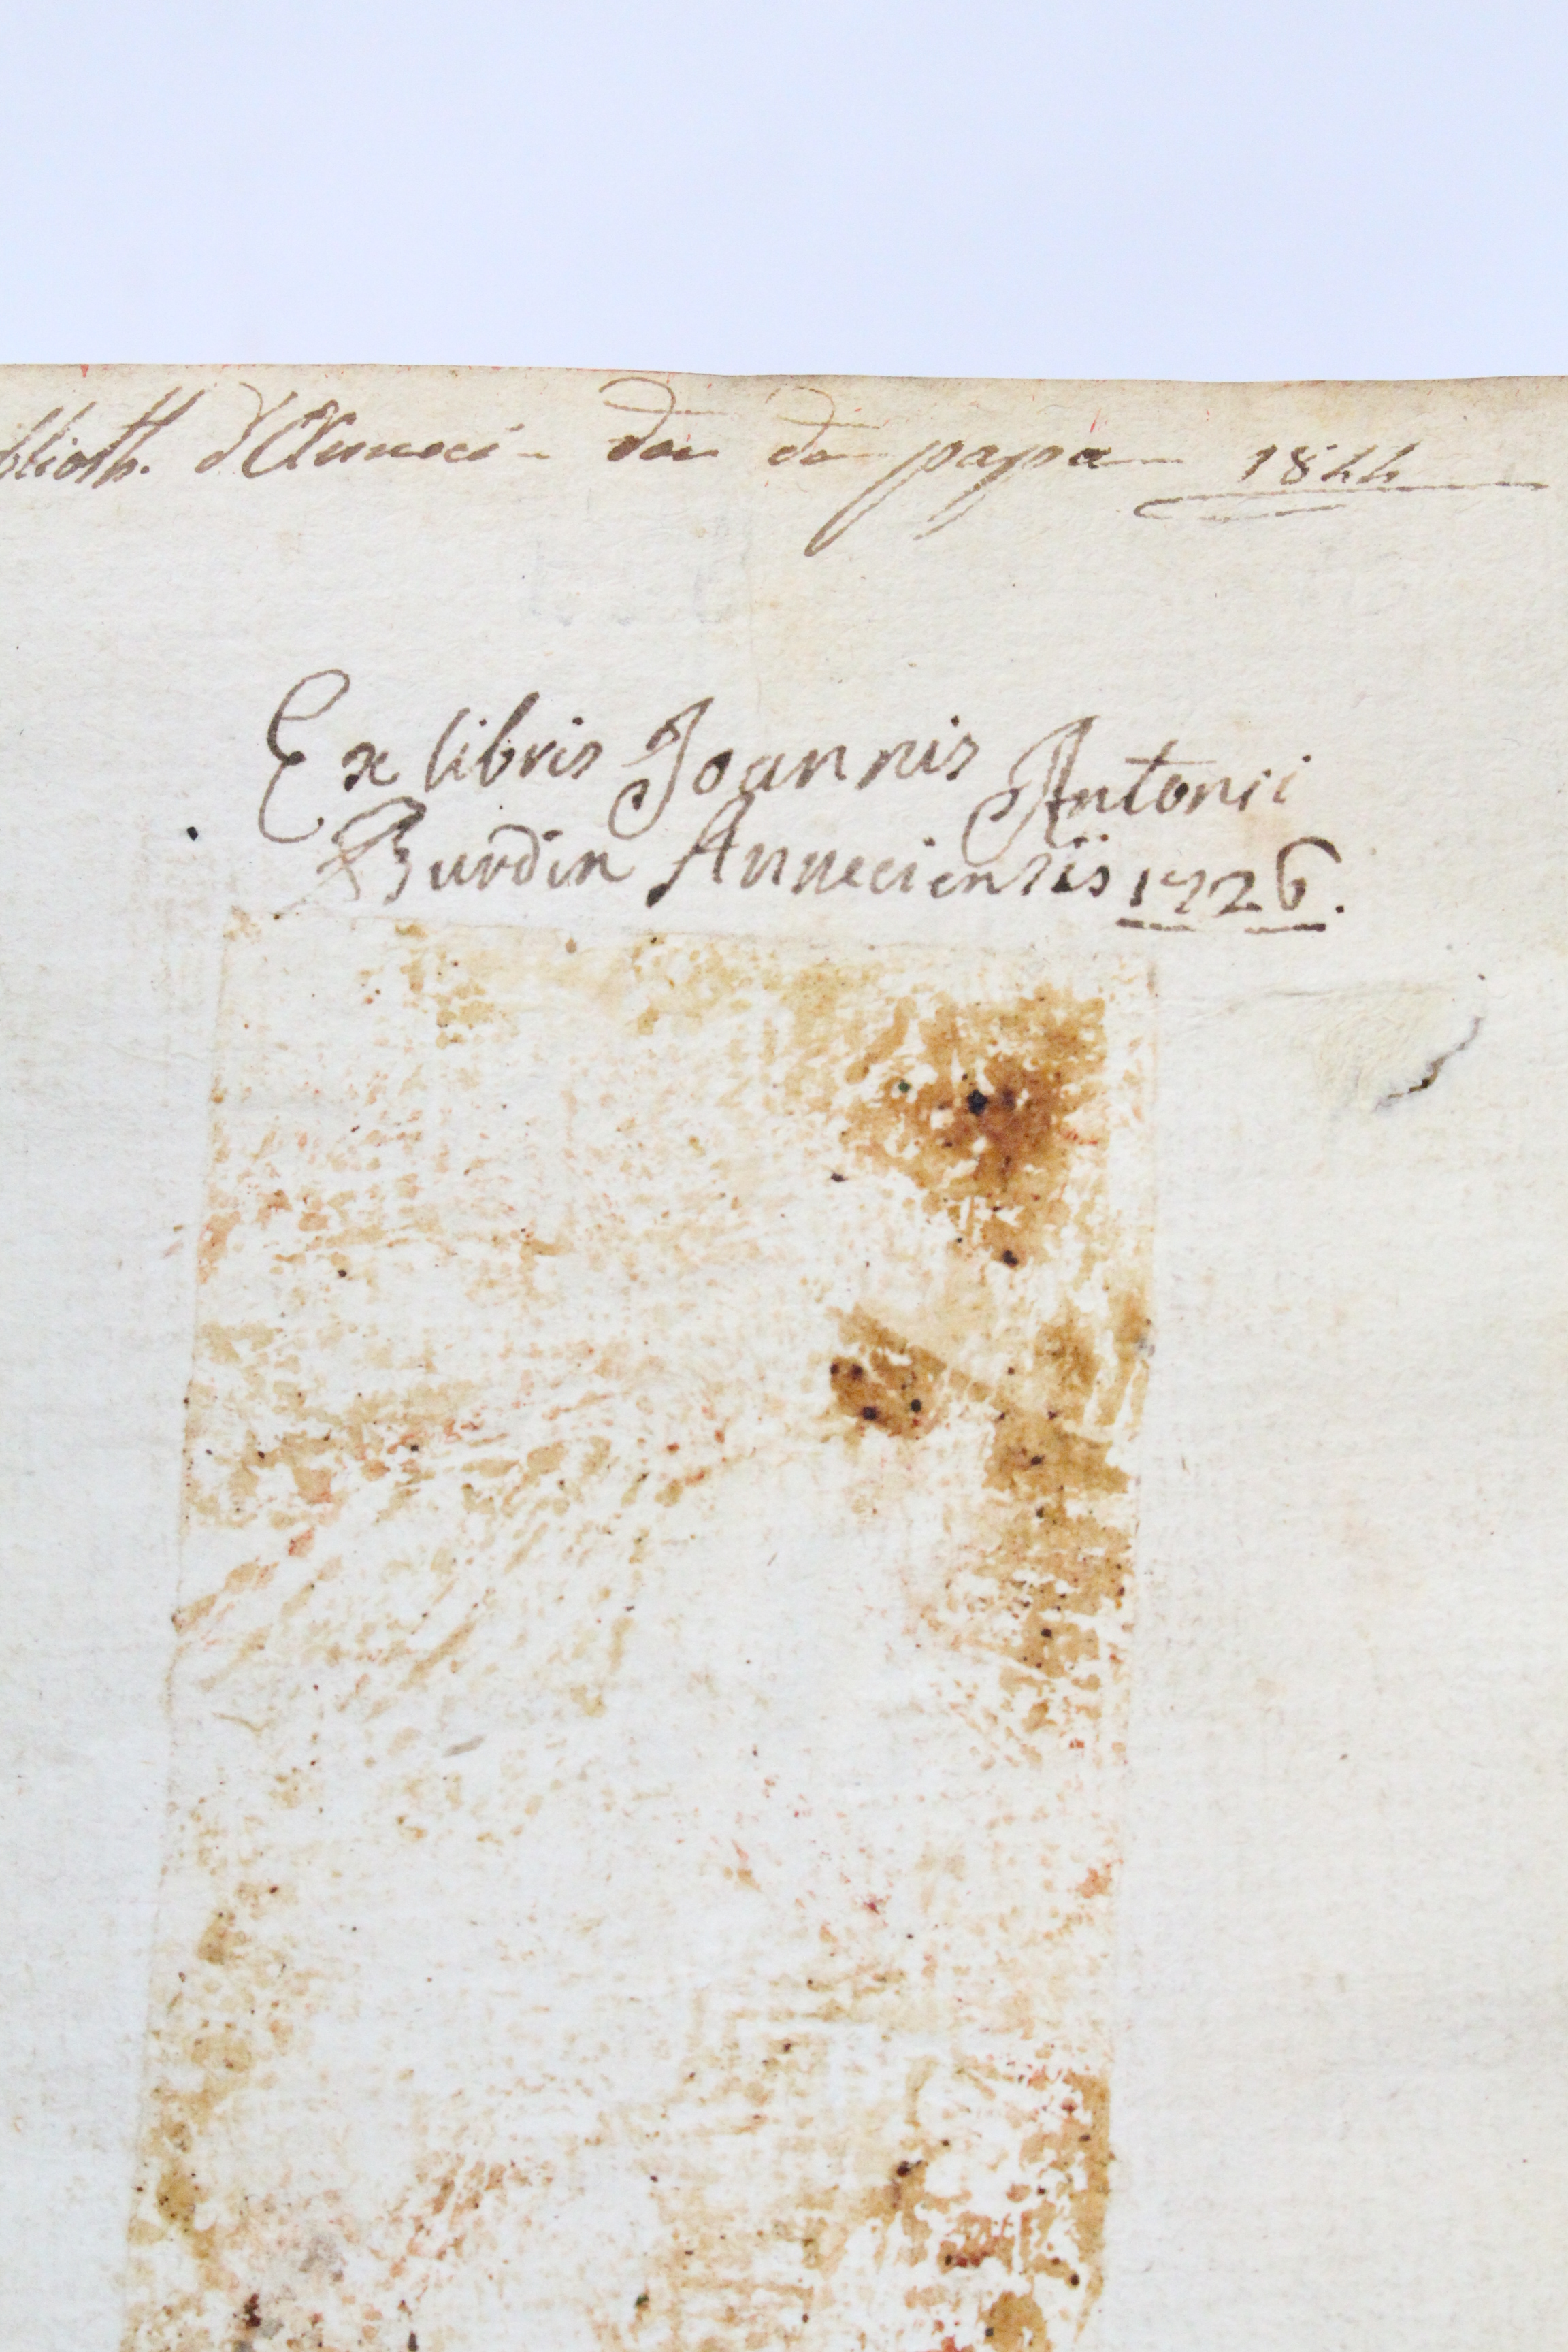 blioth. d'Anneci - don de papa 1844
Ex libris Joannis Antonii
Burdin Anneciensiis 1726.